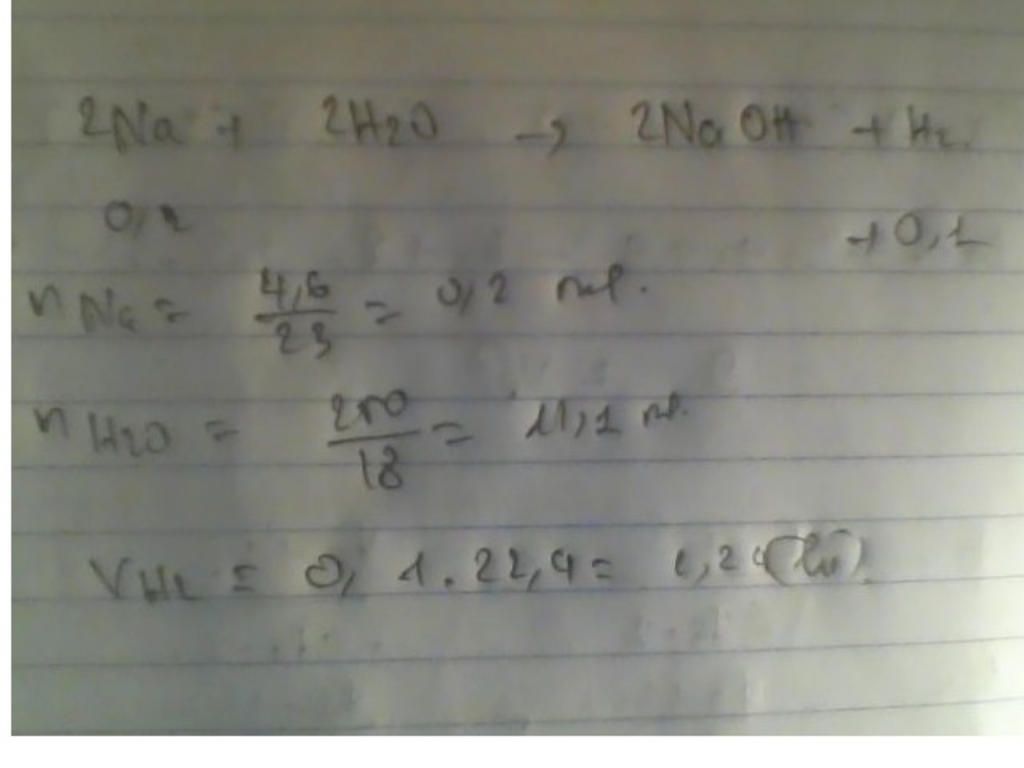 2Na + 2H2O → 2NaOH + H2.
0,2 → 0,1
nNa = 4,6/23 = 0,2 mol.
nH2O = 200/18 = 11,1 mol.
VH2 = 0,1.22,4 = 2,24 (lít)